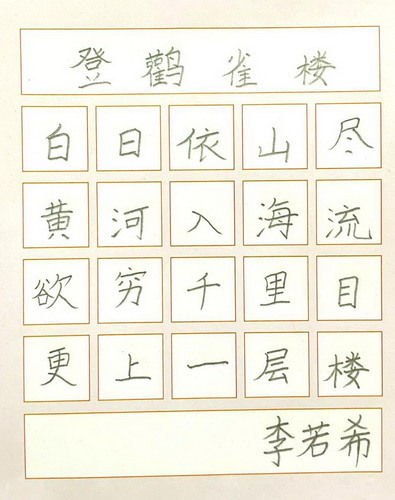 登鹳雀楼
白日依山尽
黄河入海流
欲穷千里目
更上一层楼
李若希